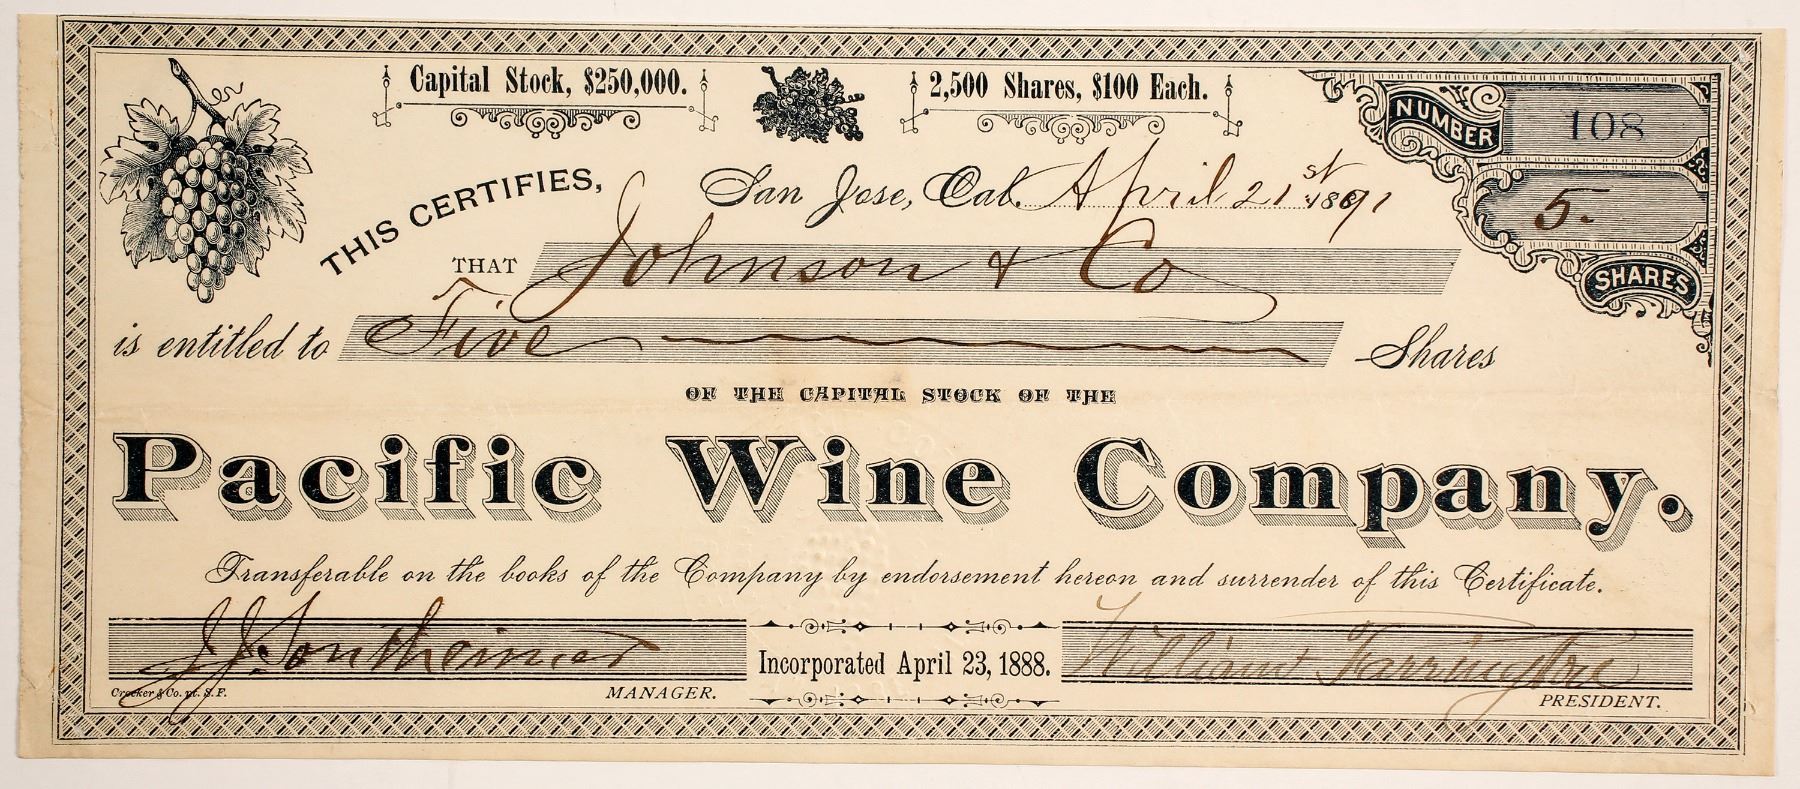 Capital Stock, $250,000.
2,500 Shares, $100 Each.
NUMBER 108
THIS CERTIFIES,
San Jose, Cal. April 21st 1891
5.
SHARES
THAT Johnson & Co
is entitled to Five Shares
OF THE CAPITAL STOCK OF THE
Pacific Wine Company.
Transferable on the books of the Company by endorsement hereon and surrender of this Certificate.
J. J. Sontheimer
Incorporated April 23, 1888.
William Farrington
Crocker & Co. pt. S. F.
MANAGER.
PRESIDENT.